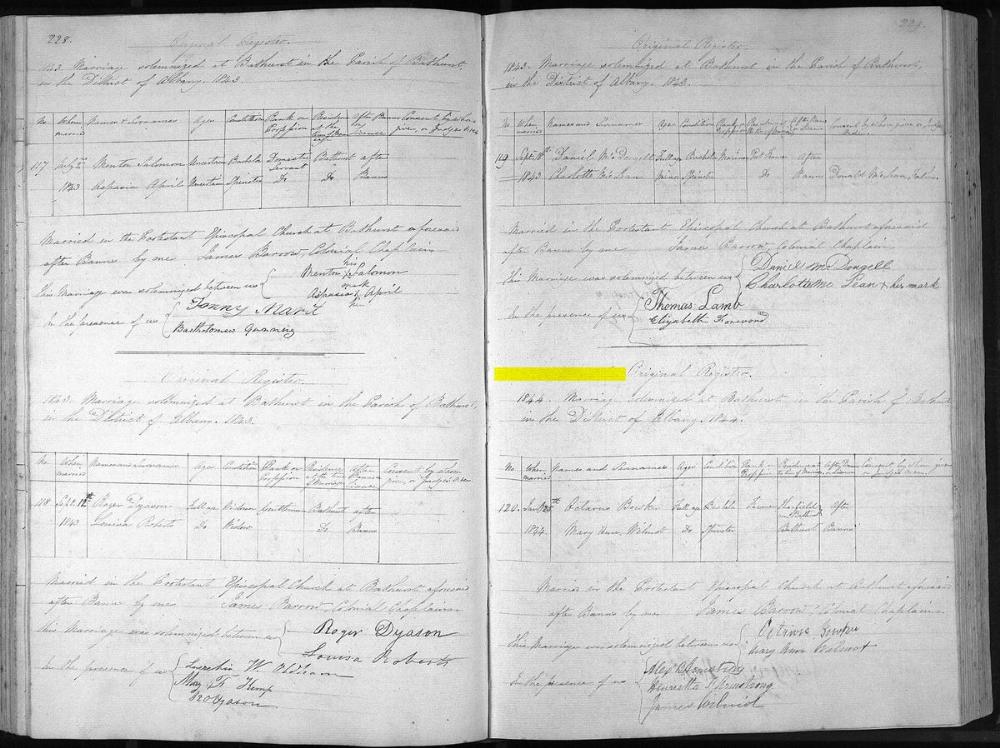 228.
Original Register.
1843. Marriage solemnized at Bathurst in the Parish of Bathurst,
in the District of Albany. 1843.
No. When married Names & Surnames Ages Condition Rank or Profession Residence at the time of Marriage After Banns or Licence Consent by whom given, or Judges Order
117 July Menton Salomon Uncertain Bachelor Domestic Servant Bathurst after
1843 Aspasia April Uncertain Spinster Do Do Banns
Married in the Protestant Episcopal Church at Bathurst aforesaid
after Banns by me James Barrow, Colonial Chaplain
This Marriage was solemnized between us Menton his Salomon
mark
Aspasia April
In the presence of us Fanny
Bartholomew
Original Register.
1843. Marriage solemnized at Bathurst in the Parish of Bathurst,
in the District of Albany. 1843.
No. When married Names and Surnames Ages Condition Rank or Profession Residence at the time of Marriage After Banns or Licence Consent by whom given, or Judges Order
118 12th Roger Dyason full age Widower Gentleman Bathurst after
1843 Louisa Roberts Do Widow Do Banns
Married in the Protestant Episcopal Church at Bathurst aforesaid
after Banns by me James Barrow, Colonial Chaplain
This Marriage was solemnized between us Roger Dyason
Louisa Roberts
In the presence of us Lucretia W Oldham
May F Kemp
Dyason
229.
Original Register
1843. Marriage solemnized at Bathurst in the Parish of Bathurst,
in the District of Albany. 1843.
No. When married Names and Surnames Ages Condition Rank or Profession Residence After Banns or Licence Consent by whom given or Judges Order
119 Sept. Daniel McDougell Full age Bachelor Marine Port Frances After
1843 Charlotte McLean Minor Spinster Do Banns Donald McLean, Father
Married in the Protestant Episcopal Church at Bathurst aforesaid
after Banns by me James Barrow, Colonial Chaplain
This Marriage was solemnized between us Daniel McDougell
Charlotte Mc Lean x her mark
In the presence of us Thomas Lamb
Elizabeth
Original Register.
1844. Marriage solemnized at Bathurst in the Parish of Bathurst
in the District of Albany. 1844.
No. When married Names and Surnames Ages Condition Rank or Profession Residence After Banns Consent by whom given
120 Jany 25th Octavius Bowker Full age Bachelor Farmer After
1844 Mary Ann Wilmot Do Spinster Bathurst Banns
Married in the Protestant Episcopal Church at Bathurst aforesaid
after Banns by me James Barrow, Colonial Chaplain
This Marriage was solemnized between us Octavius Bowker
Mary Ann Wilmot
In the presence of us Alex Armstrong
Henrietta Armstrong
James Wilmot